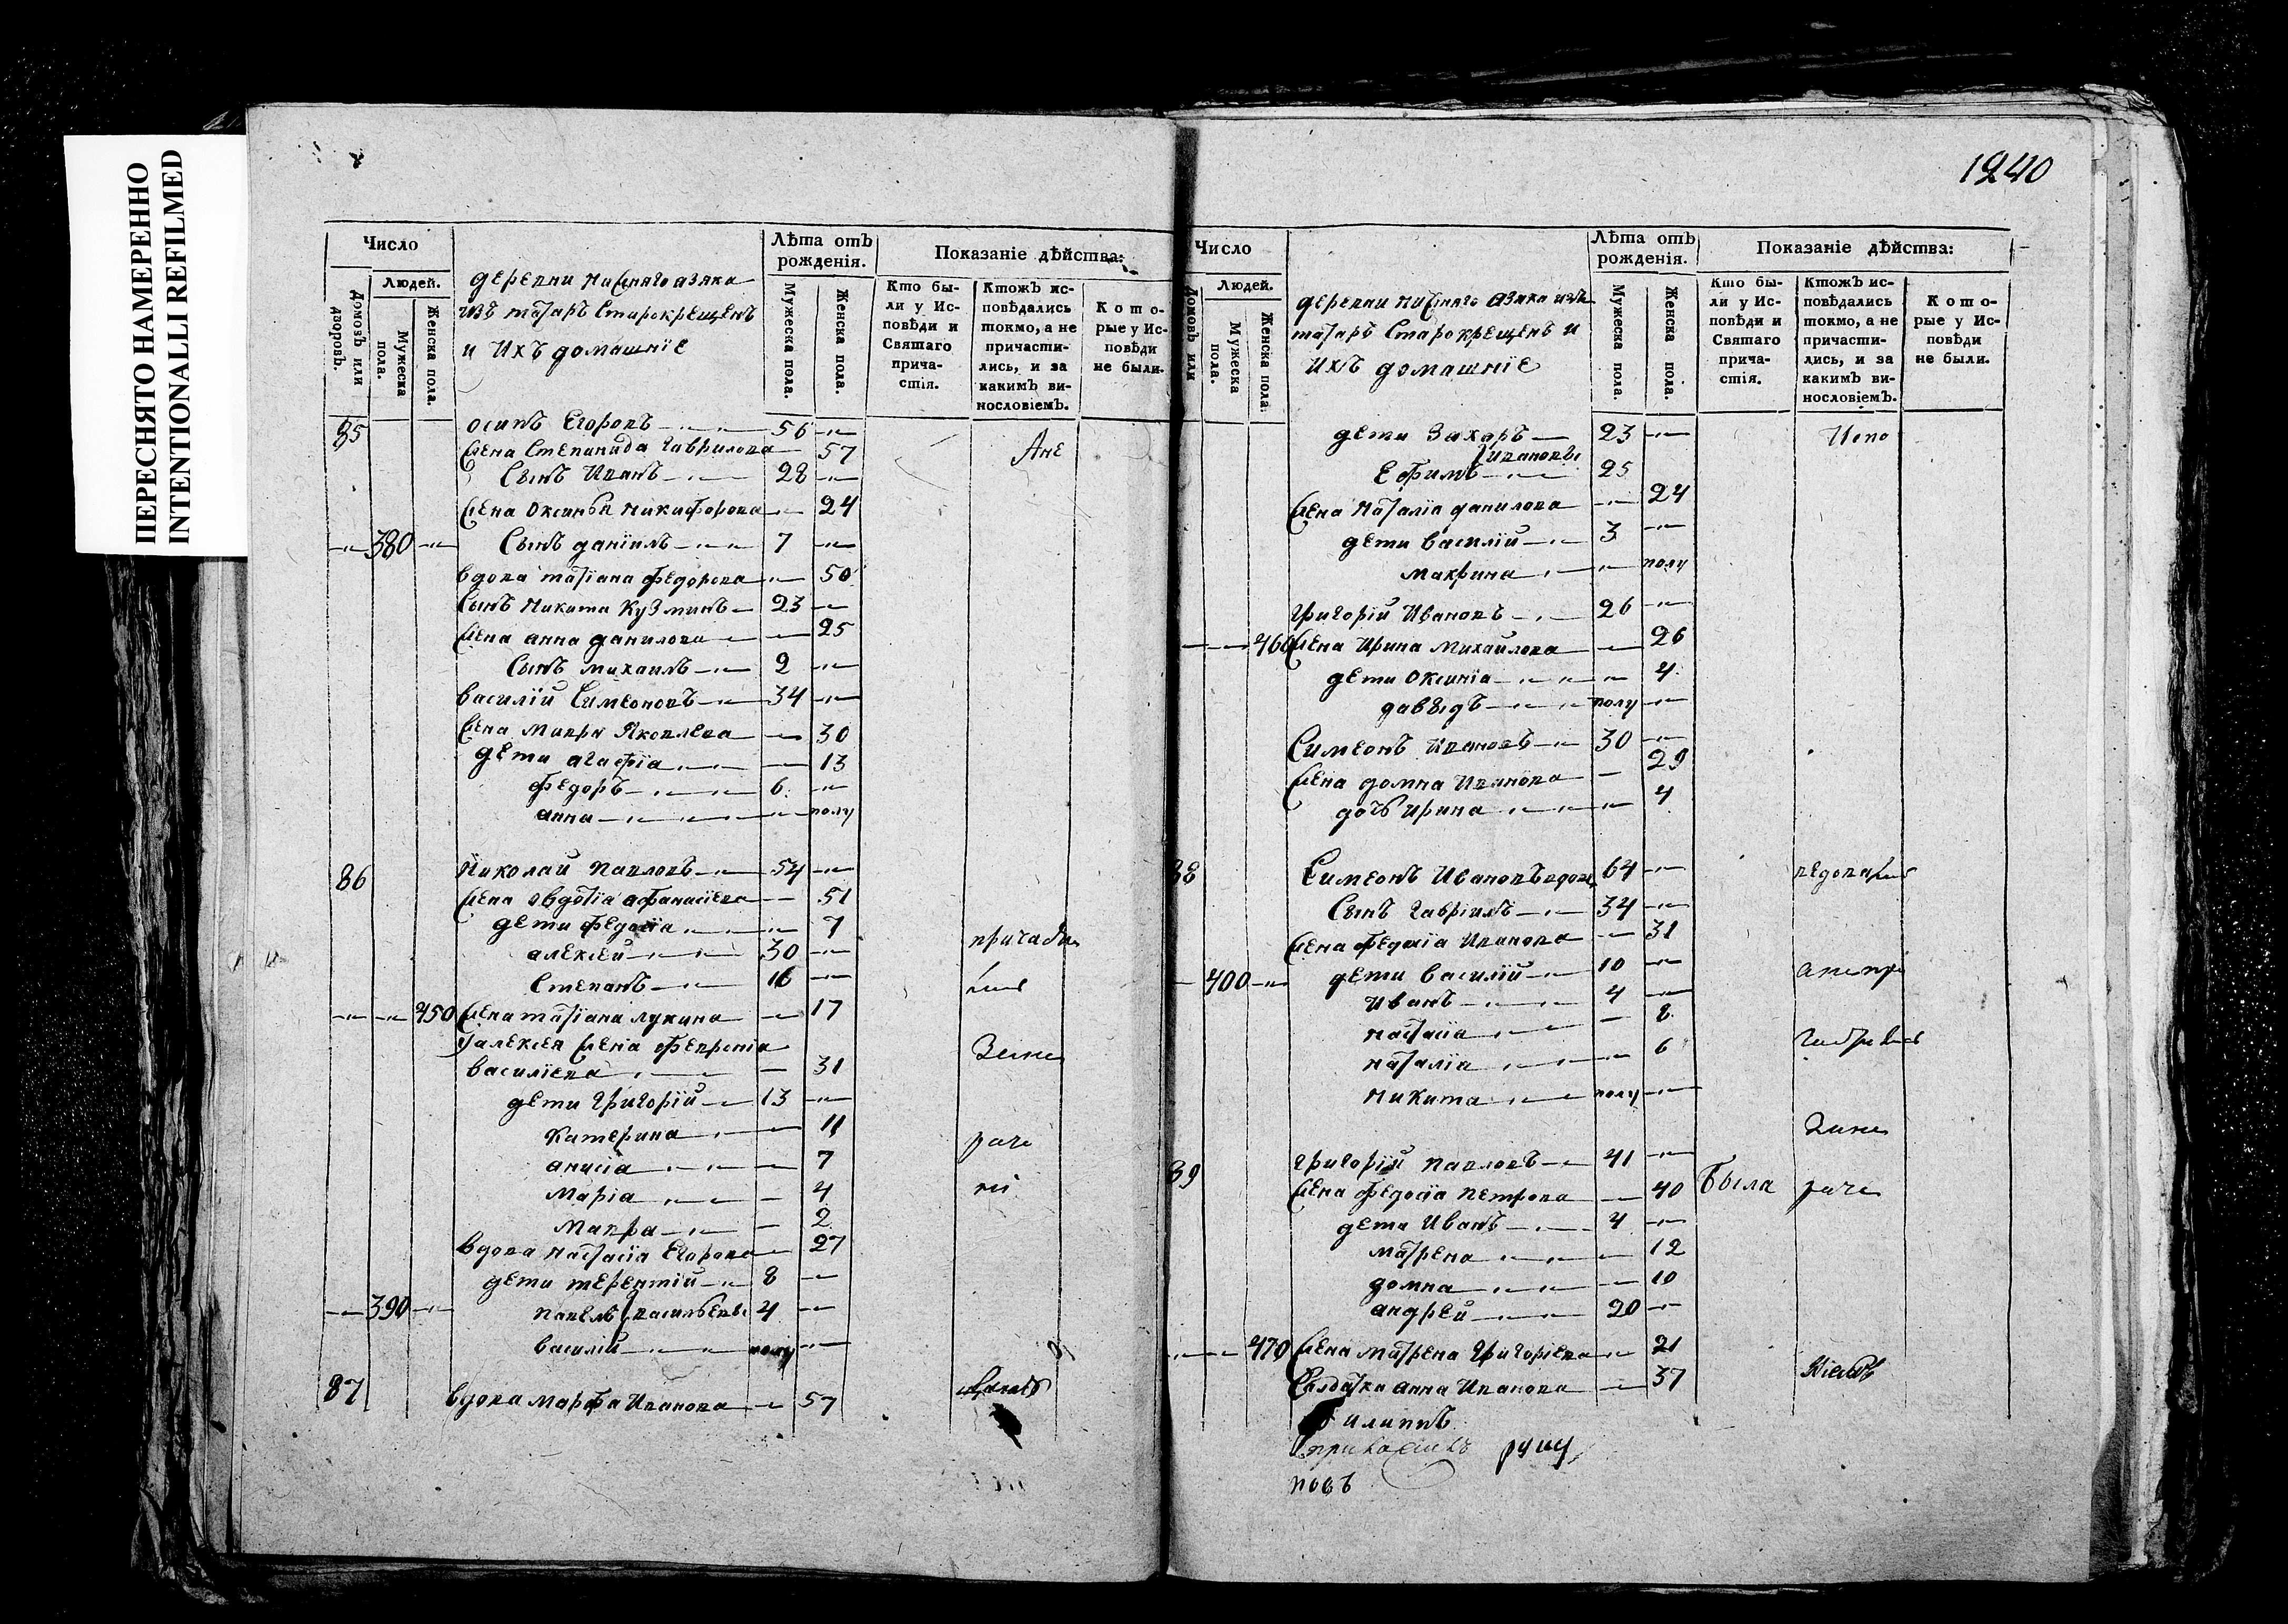 ПЕРЕСНЯТО НАМЕРЕННО
INTENTIONALLI REFILMED
Число
Лѣта отъ рожденія.
Показаніе дѣйства:
Домовъ или дворовъ.
Людей.
Мужеска пола.
Женска пола.
деревни нижняго азяка
изъ татаръ старокрещенъ
и ихъ домашніе
Мужеска пола.
Женска пола.
Кто бы-
ли у Ис-
повѣди и
Святаго
прича-
стія.
Ктожъ ис-
повѣдались
токмо, а не
причасти-
лись, и за
какимъ ви-
нословіемъ.
Кото-
рые у Ис-
повѣди
не были.
85 осипъ Егоровъ 56
жена Степанида гаврилова 57 Ане
сынъ Иванъ 28
жена Оксинья никифорова 24
380 сынъ даніилъ 7
вдова татіана федорова 50
сынъ никита кузминъ 23
жена анна данилова 25
сынъ михаилъ 2
василій Симеоновъ 34
жена мавра Яковлева 30
дети агафіа 13
федоръ 6
анна полу
86 николай павловъ 54
жена овдотіа афанасіева 51
дети федосіа 7
алексей 30
степанъ 16
450 жена татіана лукина 17
у алексея жена февроніа
василіева 31
дети григорій 13
катерина 11
анисіа 7
маріа 4
мавра 2
вдова настасіа егорова 27
дети терентій 8
390 павелъ васильевы 4
василій полу
87 вдова марфа Иванова 57
1240
Число
Лѣта отъ рожденія.
Показаніе дѣйства:
Домовъ или
Людей.
Мужеска пола.
Женска пола.
деревни нижняго азяка изъ
татаръ старокрещенъ и
ихъ домашніе
Мужеска пола.
Женска пола.
Кто бы-
ли у Ис-
повѣди и
Святаго
прича-
стія.
Ктожъ ис-
повѣдались
токмо, а не
причасти-
лись, и за
какимъ ви-
нословіемъ.
Кото-
рые у Ис-
повѣди
не были.
дети Захаръ 23 Испо
Ивановы
Ефимъ 25
жена наталіа данилова 24
дети василій 3
макрина полу
григорій Ивановъ 26
460 жена Ирина михаилова 26
дети оксиніа 4
давыдъ полу
Симеонъ Ивановъ 30
жена домна Иванова 29
дочь ирина 4
88 Симеонъ Ивановъ вдовъ 64
сынъ гавріилъ 34
жена федосіа Иванова 31
400 дети василій 10
Иванъ 4
настасіа 8
наталіа 6
никита полу
89 григорій павловъ 41
жена федосіа петрова 40 была
дети Иванъ 4
матрена 12
домна 10
андрей 20
470 жена матрена григоріева 21
салдатка анна Иванова 37
филиппъ
руку
повъ